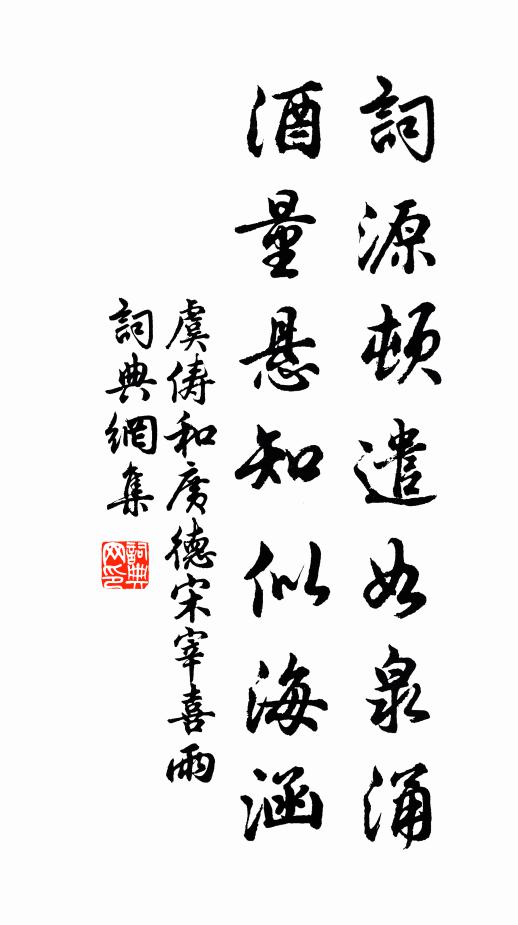 詞源頓遣如泉涌
酒量悬知似海涵
虞儔和廣德宋宰喜雨
詞典網集
詞典网印